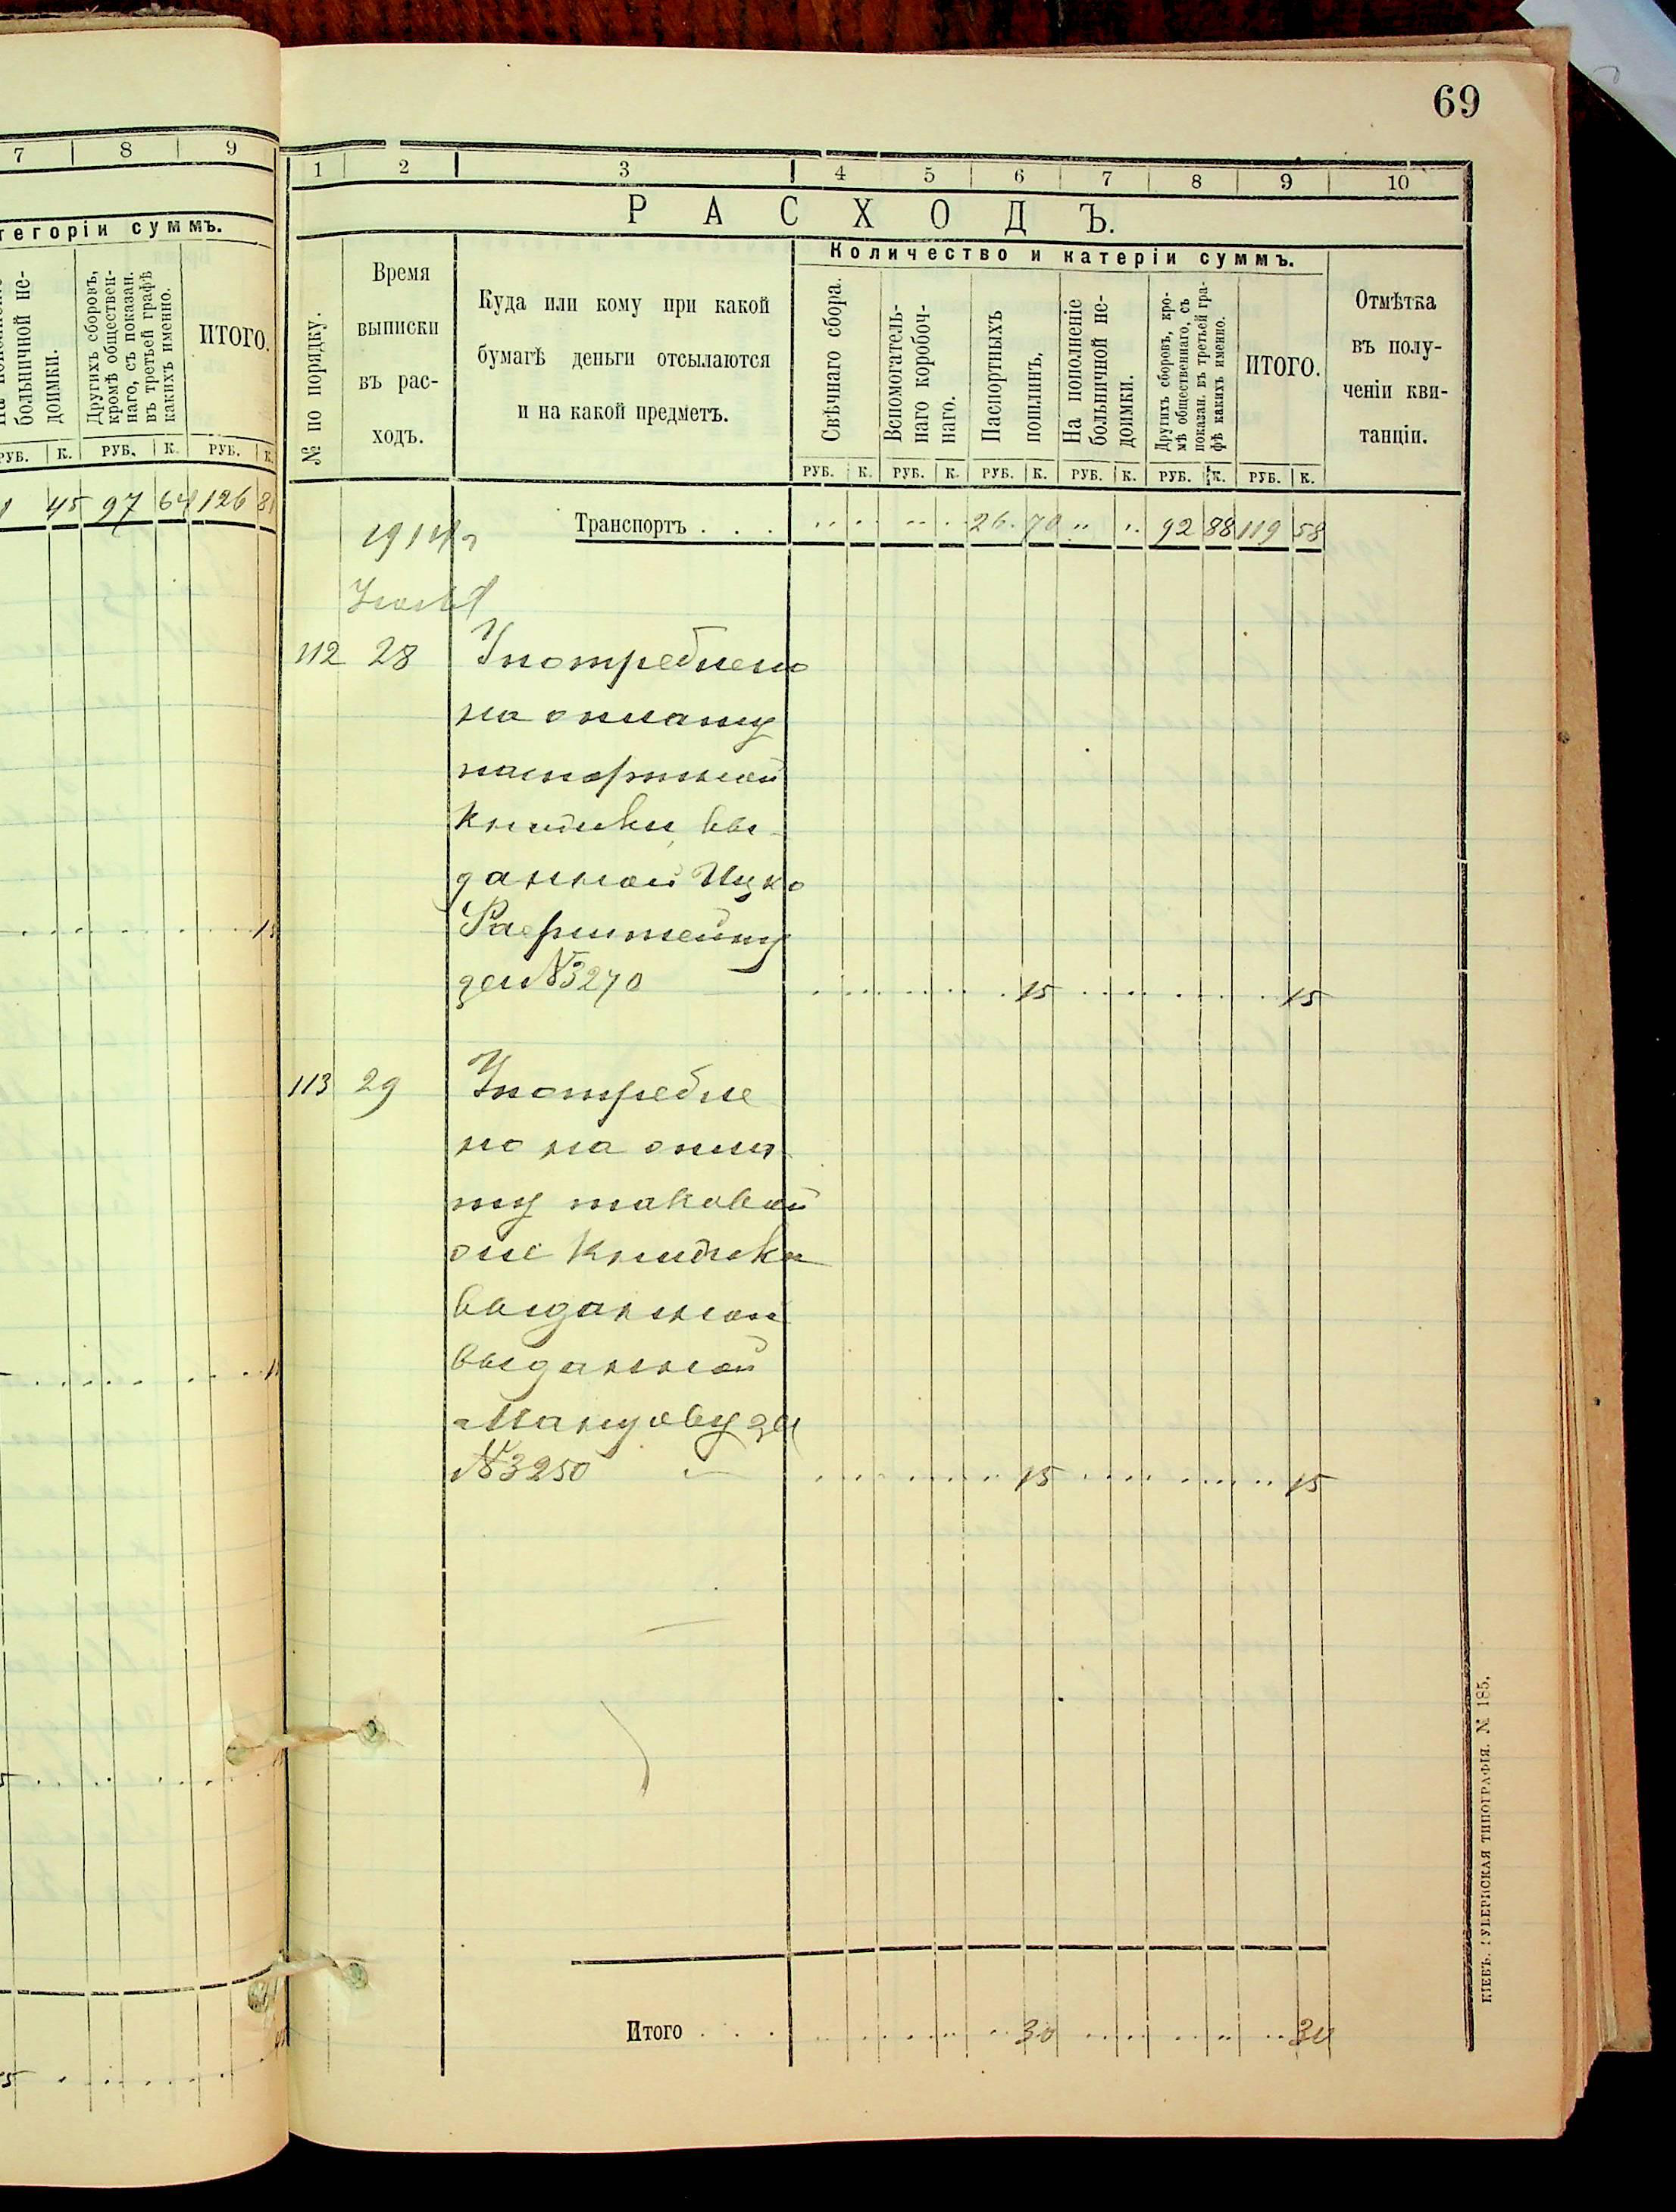 69
7 8 9
тегоріи суммъ.
больничной не-
доимки.
Другихъ сборовъ,
кромѣ обществен-
наго, съ показан.
въ третьей графѣ
какихъ именно.
ИТОГО.
РУБ. К. РУБ. К. РУБ. К.
45 97 64 126 81
1 2 3 4 5 6 7 8 9 10
РАСХОДЪ.
№ по порядку.
Время
выписки
въ рас-
ходъ.
Куда или кому при какой
бумагѣ деньги отсылаются
и на какой предметъ.
Количество и катеріи суммъ.
Свѣчнаго сбора.
Вспомогатель-
наго коробоч-
наго.
Паспортныхъ
пошлинъ.
На пополненіе
больничной не-
доимки.
Другихъ сборовъ, кро-
мѣ общественнаго, съ
показан. въ третьей гра-
фѣ какихъ именно.
ИТОГО.
Отмѣтка
въ полу-
ченіи кви-
танціи.
РУБ. К. РУБ. К. РУБ. К. РУБ. К. РУБ. К. РУБ. К.
Транспортъ . . . 26 70 92 88 119 58
1914 г
112 28 Употреблено
на оплату
паспортной
книжки, вы-
данной Ицко
за №3270 15 15
113 29 Употребле
но на опла
ту таковой
оже книжки
выданной
выданной
за
№3250 15 15
Итого . . . 30 30
КІЕВЪ. ГУБЕРНСКАЯ ТИПОГРАФІЯ. № 185.